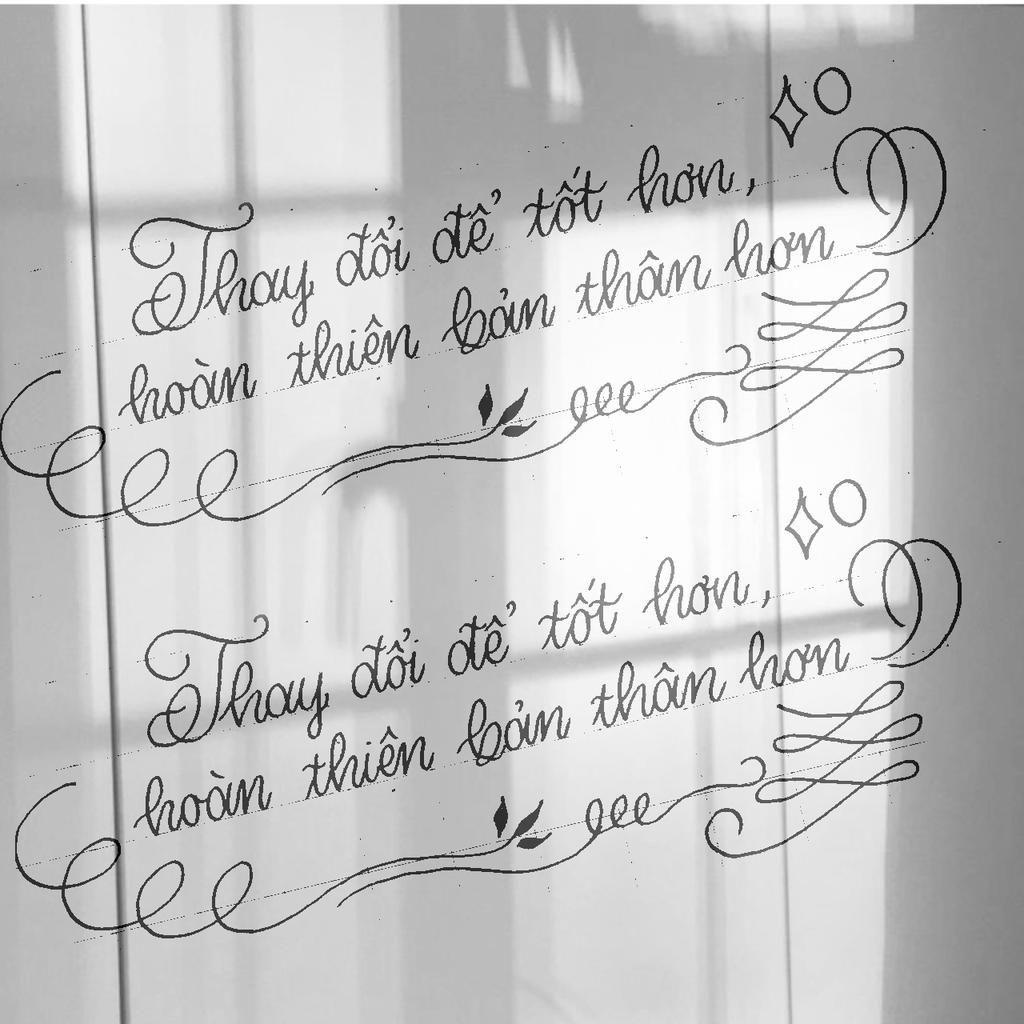 Thay đổi để tốt hơn,
hoàn thiện bản thân hơn
Thay đổi để tốt hơn,
hoàn thiện bản thân hơn